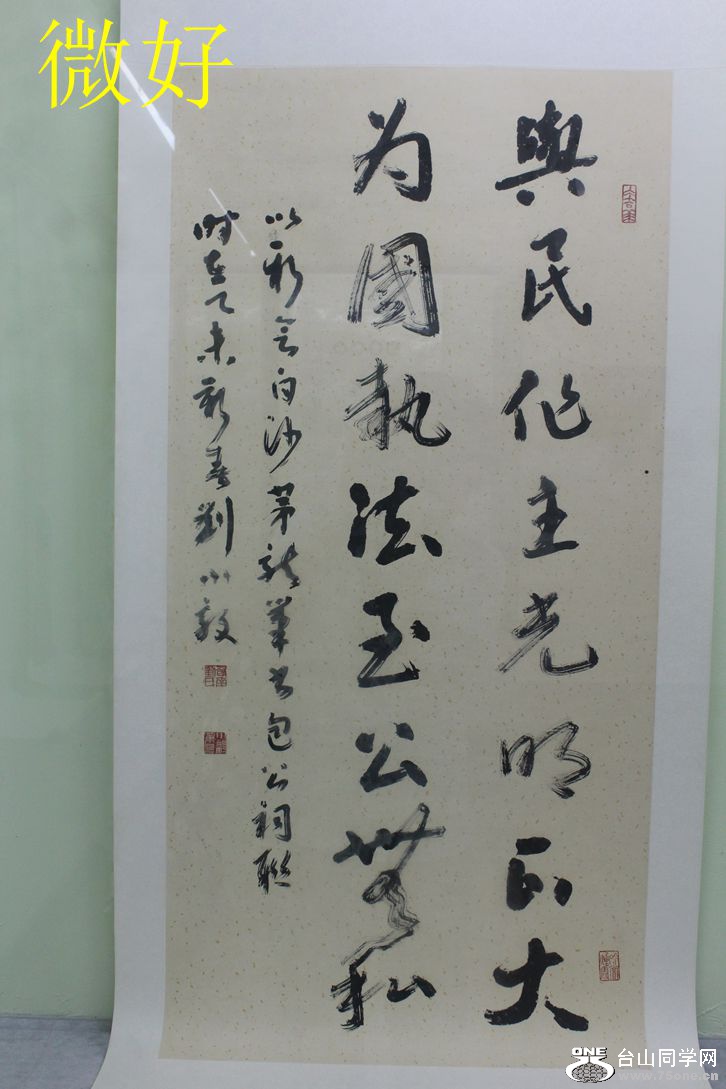 微好
與民作主光明正大
为國執法至公無私
以新会白沙茅龙筆书包公祠联
时在乙未新春劉小毅
ONE
台山同学网